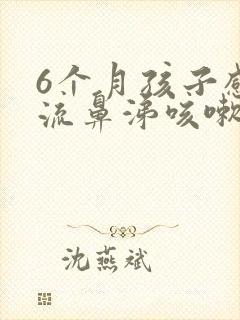 6个月孩子感
流鼻涕咳嗽
沈燕斌